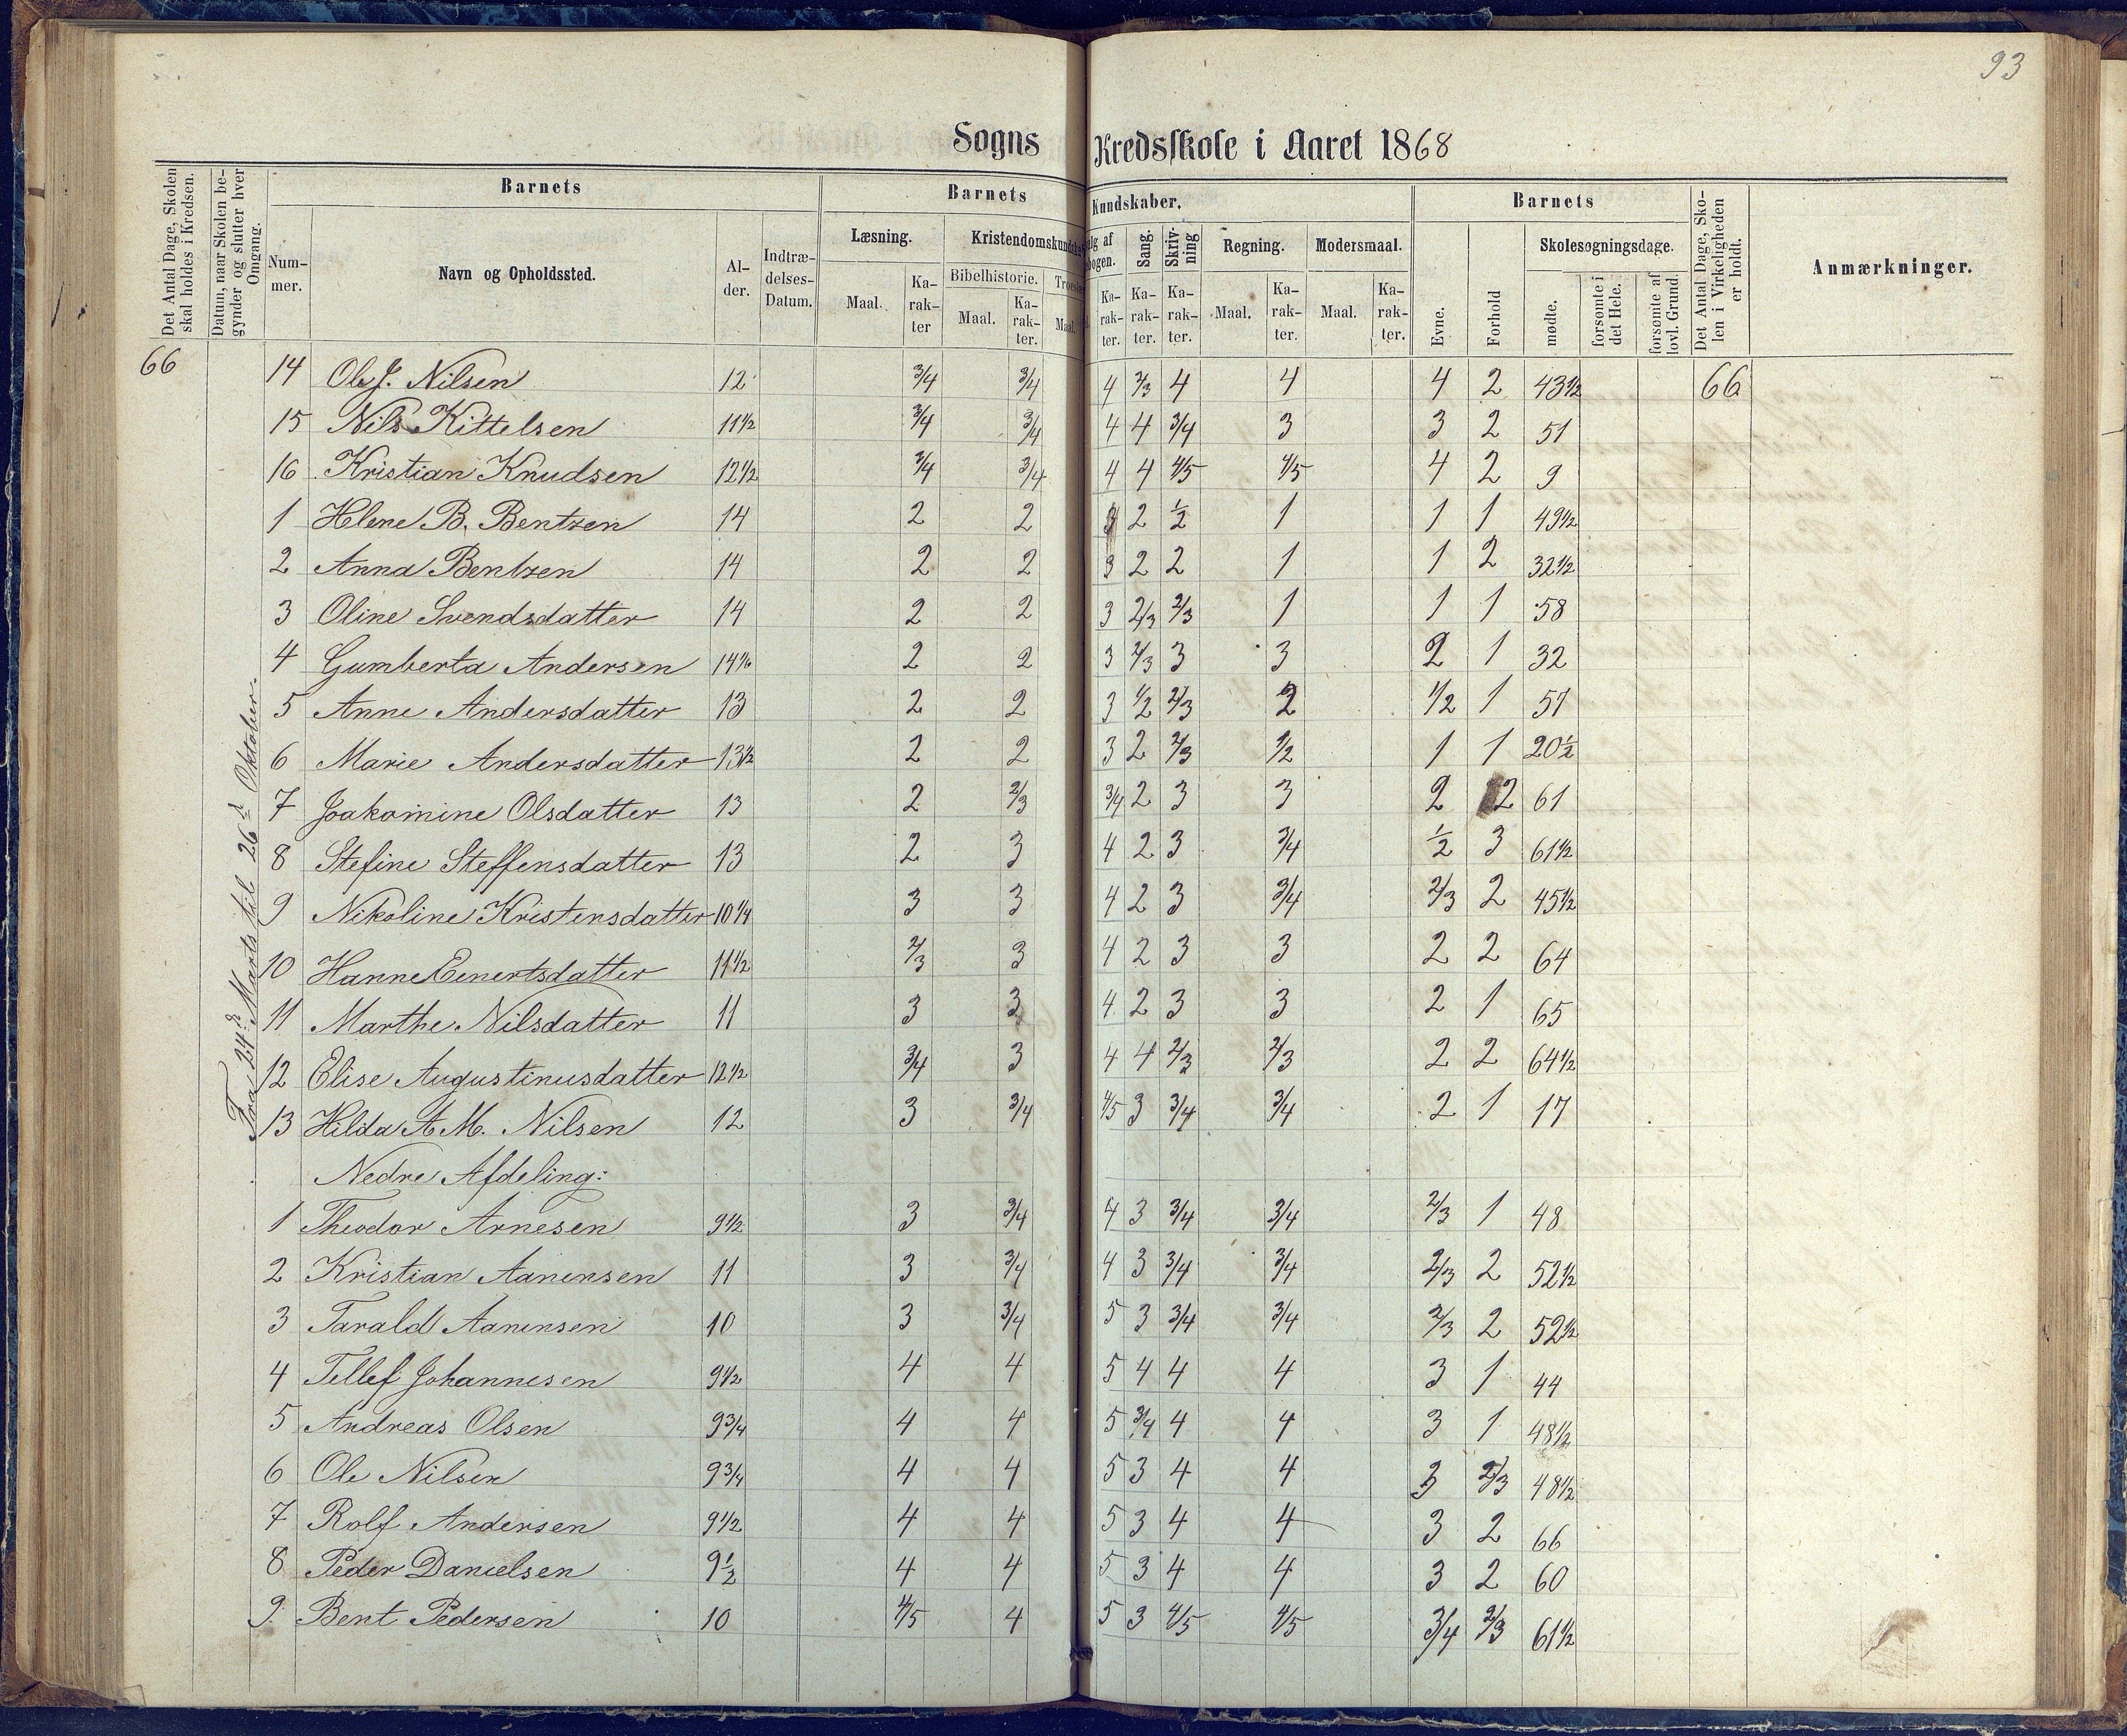 93
Sogns Kredsskole i Aaret 1868
Det Antal Dage, Skolen skal holdes i Kredsen.
Datum, naar Skolen begynder og slutter hver Omgang.
Barnets
Nummer.
Navn og Opholdssted.
Alder.
Indtrædelses-Datum.
Barnets Kundskaber.
Læsning.
Maal. Karakter
Kristendomskundska
Bibelhistorie.
Maal. Karakter.
Troes
Maal.
lg af
ogen.
Karakter.
Sang.
Karakter.
Skrivning
Karakter.
Regning.
Maal. Karakter.
Modersmaal.
Maal. Karakter.
Barnets
Evne.
Forhold
Skolesøgningsdage.
mødte.
forsømte i det Hele.
forsømte af lovl. Grund.
Det Antal Dage, Skolen i Virkeligheden er holdt.
Anmærkninger.
Fra 24de Marts til 26de Oktober.
66 14 Ole J. Nilsen 12 3/4 3/4 4 2/3 4 4 4 2 43 1/2 66
15 Nils Kittelsen 11 1/2 3/4 3/4 4 4 3/4 3 3 2 51
16 Kristian Knudsen 12 1/2 3/4 3/4 4 4 4/5 4/5 4 2 9
1 Helene B. Bentzen 14 2 2 2 1/2 1 1 1 49 1/2
2 Anna Bentzen 14 2 2 3 2 2 1 1 2 32 1/2
3 Oline Svendsdatter 14 2 2 3 2/3 2/3 1 1 1 58
4 Gumberta Andersen 2 2 3 2/3 3 3 2 1 32
5 Anne Andersdatter 13 2 2 3 1/2 2/3 2 1/2 1 57
6 Marie Andersdatter 13 1/2 2 2 3 2 2/3 1/2 1 1 20 1/2
7 Joakomine Olsdatter 13 2 2/3 3/4 2 3 3 2 2 61
8 Stefine Steffensdatter 13 2 3 4 2 3 3/4 1/2 3 61 1/2
9 Nikoline Kristensdatter 10 1/4 3 3 4 2 3 3/4 2/3 2 45 1/2
10 Hanne Einertsdatter 11 1/2 2/3 3 4 2 3 3 2 2 64
11 Marthe Nilsdatter 11 3 3 4 2 3 3 2 1 65
12 Elise Augustinusdatter 12 1/2 3/4 3 4 4 2/3 2/3 2 2 64 1/2
13 Hilda A. M. Nilsen 12 3 3/4 4/5 3 3/4 3/4 2 1 17
Nedre Afdeling:
1 Theodor Arnesen 9 1/2 3 3/4 4 3 3/4 3/4 2/3 1 48
2 Kristian Aanensen 11 3 3/4 4 3 3/4 3/4 2/3 2 52 1/2
3 Tarald Aanensen 10 3 3/4 5 3 3/4 3/4 2/3 2 52 1/2
4 Tellef Johannesen 9 1/2 4 4 5 4 4 4 3 1 44
5 Andreas Olsen 9 3/4 4 4 5 3/4 4 4 3 1 48 1/2
6 Ole Nilsen 9 3/4 4 4 5 3 4 4 3 2/3 48 1/2
7 Rolf Andersen 9 1/2 4 4 5 3 4 4 3 2 66
8 Peder Danielsen 9 1/2 4 4 5 3 4 4 3 2 60
9. Bent Pedersen 10 4/5 4 5 3 4/5 4/5 3/4 2/3 61 1/2